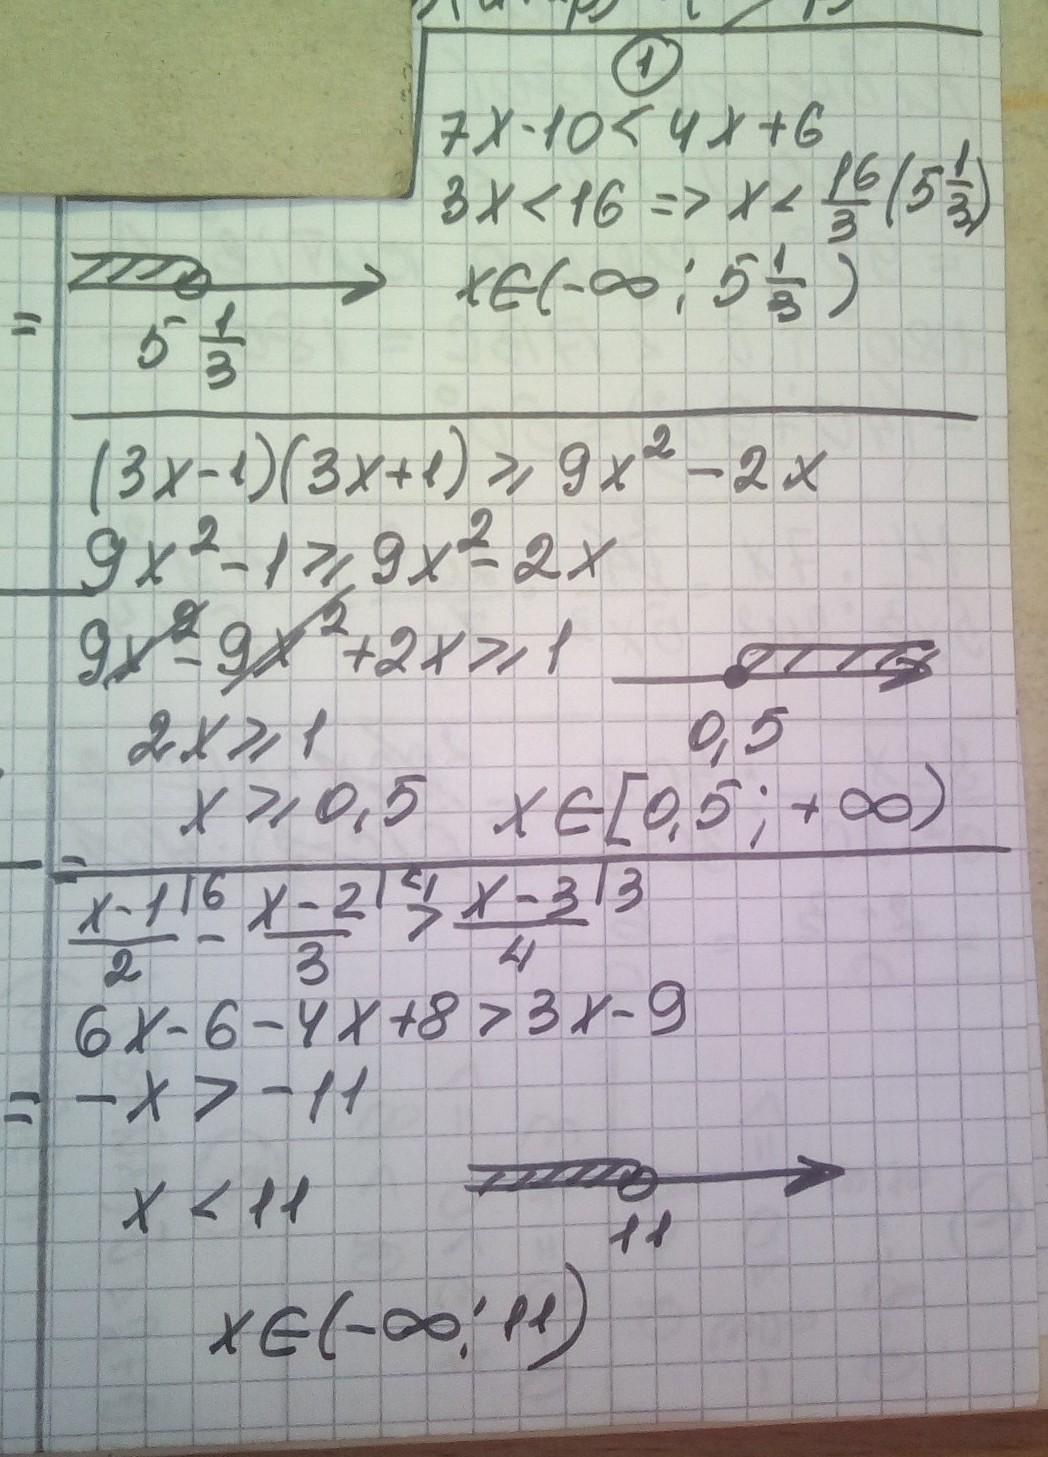 ①
7x-10<4x+6
3x<16 => x< 16/3 (5 1/3)
x∈(-∞; 5 1/3)
5 1/3
=
(3x-1)(3x+1)⩾9x²-2x
9x²-1⩾9x²-2x
9x²-9x²+2x⩾1
2x⩾1
0,5
x⩾0,5 x∈[0,5;+∞)
=
x-1|6/2 - x-2|4/3 > x-3|3/4
6x-6-4x+8>3x-9
= -x>-11
x<11
11
x∈(-∞;11)